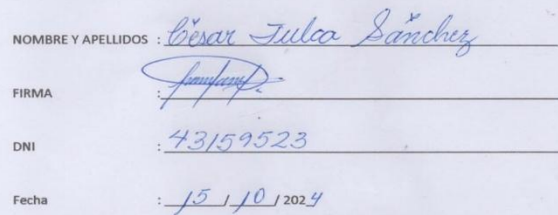 NOMBRE Y APELLIDOS : César Tulca Sánchez
FIRMA :
DNI : 43159523
Fecha : 15 / 10 / 2024